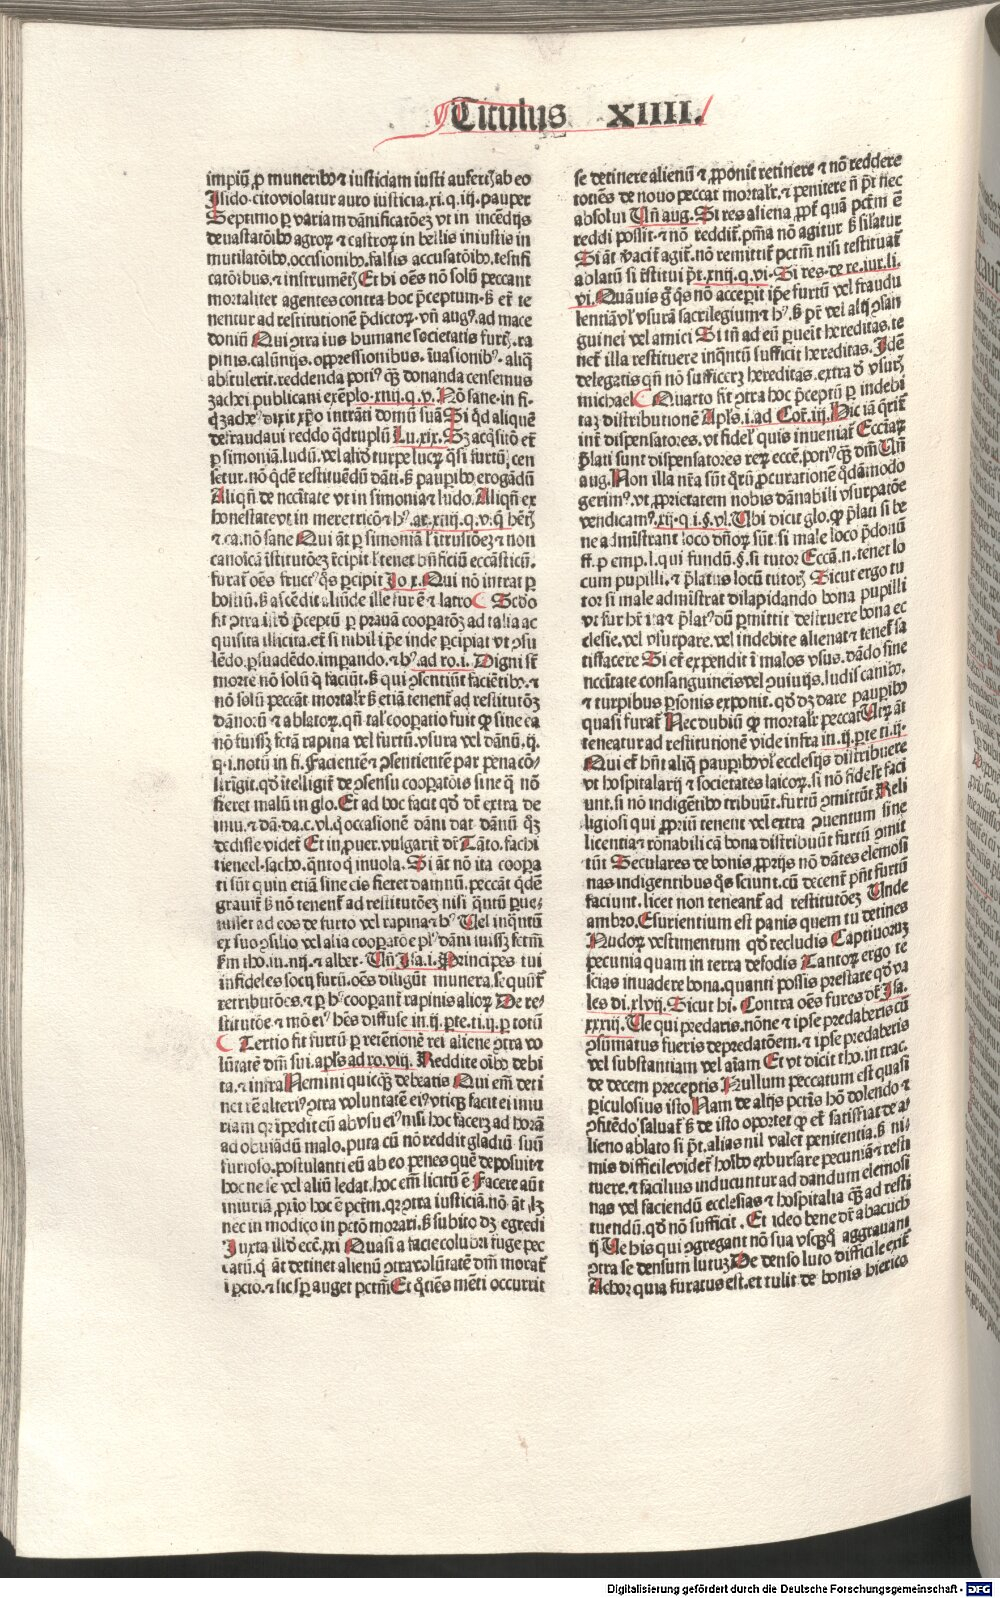 Titulus XIIII.
impiū ꝓ muneribꝰ ⁊ iusticiam iusti aufertꝭ ab eo
Isido. cito violatur auro iusticia. xi. q. iij. pauper
Septimo ꝑ variam dānificatōeꝫ vt in incēdijs
deuastatōibꝰ agroꝝ ⁊ castroꝝ in bellis iniustis in
mutilatōibꝰ. occisionibꝰ. falsis accusatōibꝰ. testifi
catōibus. ⁊ instrumētꝭ Et hi oēs nō solū peccant
mortaliter agentes contra hoc p̄ceptum. sꝫ et̄ te
nentur ad restitutionē p̄dictoꝝ. vn̄ augꝰ. ad mace
doniū Qui ꝯtra ius humane societatis furtꝭ. ra
pinis. calūnijs. oppressionibus. īuasionibꝰ. aliq̄
abstulerit. reddenda potiꝰ qꝫ donanda censemus
zachei publicani exēplo. xiiij. q. v. Nō sane. in fi.
zacheꝰ dixit xp̄o intrāti domū suā Si qd aliquē
defraudaui reddo qdruplū Lu. xix. Sꝫ acqsitū et̄
ꝑ simoniā. ludū. vel aliud turpe lucꝝ qsi furtū cen
setur. nō qdē restituēdū dāti. sꝫ pauꝑibꝰ erogādū
Aliqn̄ de nccitate vt in simonia ⁊ ludo. Aliqn̄ ex
honestate vt in meretricō ⁊ hꝰ. ar. xiiij. q. v. q hētꝭ
⁊ ca. nō sane Qui aūt ꝑ simoniā l' ītrusiōeꝫ ⁊ non
canoīcā īstitutōeꝫ īcipit l' tenet bn̄ficiū eccāsticū.
furat̄ oēs fructꝰ qs ꝑcipit Jo. x. Qui nō intrat ꝑ
hostiū. sꝫ ascēdit aliūde ille fur ē ⁊ latro Scdo
fit ꝯtra illd p̄ceptū ꝑ prauā cooꝑatōꝫ ad talia ac
quisita illicita. et̄ si nihil ip̄e inde ꝑcipiat vt ꝯsu
lēdo. ꝑsuadēdo. imꝑando. ⁊ hꝰ. ad ro. i. Digni st̄
morte nō solū q faciūt. sꝫ qui ꝯsentiūt faciētibꝰ. ⁊
nō solū peccāt mortalr̄ sꝫ etiā tenent̄ ad restitutōꝫ
dānorū ⁊ ablatoꝝ. qn̄ tal' cooꝑatio fuit ꝙ sine ea
nō fuissꝫ fctā rapina vel furtū. vsura vel dānū. ij.
q. i. notū in fi. Facientē ⁊ ꝯsentientē par pena cō-
strīgit. qd ītelligit̄ de ꝯsensu cooꝑatōis sine q nō
fieret malū in glo. Et ad hoc facit qd dr̄ extra de
iniu. ⁊ dā. da. c. vl. q occasionē dāni dat dānū qꝫ
dedisse videt̄ Et in ꝓuer. vulgarit̄ dr̄ Tāto. fa chi
tiene el. sacho. qnto q inuola. Si aūt nō ita cooꝑa
ti sūt quin etiā sine eis fieret damnū. peccāt qdē
grauit̄ sꝫ nō tenent̄ ad restitutōeꝫ nisi qntū ꝑue-
nisset ad eos de furto vel rapina ⁊ hꝰ Vel inqntū
ex suo ꝯsilio vel alia cooꝑatōe plꝰ dāni fuissꝫ fctm̄
Infideles socij furū. oēs diligūt munera. sequūt̄
retributōes. ⁊ ꝑ hꝰ cooꝑant̄ rapinis alioꝝ De re-
stitutōe ⁊ mō eiꝰ hēs diffuse in. ij. ꝑte. ti. ij. ꝑ totū
Tertio fit furtū ꝑ retētionē rei aliene ꝯtra vo
lūtatē dn̄i sui. apl's ad ro. xiij. Reddite oībꝰ debi
ta. ⁊ infra Nemini quicqꝫ debeatis Qui em̄ deti
net rē alteriꝰ ꝯtra voluntatē eiꝰ vtiqꝫ facit ei iniu
riam qr īpedit eū ab vsu eiꝰ nisi hoc facerꝫ ad horā
ad obuiādū malo. puta cū nō reddit gladiū suū
furioso. postulanti eū ab eo penes quē deposuit ⁊
hoc ne se vel aliū ledat. hoc em̄ licitū ē Facere aūt
iniuriā ꝓxīo hoc ē pctm̄. qr ꝯtra iusticiā. nō aūt lꝫ
nec in modico in pctō morari. sꝫ subito dꝫ egredi
Iuxta illd ecc. xxi Quasi a facie colubri fuge pec
catū. q aūt detinet alienū ꝯtra volūtatē dn̄i morat̄
ī pctō. ⁊ sic sꝑ auget pctm̄ Et qtiēs mēti occurrit
se detinere alienū ⁊ ꝓponit retinere ⁊ nō reddere
totiēs de nouo peccat mortalr̄. ⁊ penitere n̄ pt̄ nec
absolui Vn̄ aug. Si res aliena ꝓpt̄ quā pctm̄ ē
reddi possit. ⁊ nō reddit̄. pn̄ia nō agitur sꝫ silatur
Si aūt vacit̄ agit̄. nō remittit̄ pctm̄ nisi restituat̄
ablatū si īstitui pt̄. xiiij. q. vi. Si res. de re. iur. li.
vi. Quāuis gͦ qs nō acceꝑit ip̄e furtū vel fraudu
lentiā vl' vsurā sacrilegium ⁊ hꝰ. sꝫ pr̄ vel alij ꝯsan
guinei vel amici Si tn̄ ad eū ꝑueīt hereditas. te
net̄ illa restituere inqntū sufficit hereditas. Idē
de legatis qn̄ nō sufficerꝫ hereditas. extra d vsurꝭ
michael Quarto fit ꝯtra hoc p̄ceptū ꝑ indebi
taꝫ distributionē Apl's. i. ad Cor. iiij. Hic iā qrit̄
int̄ dispensatores. vt fidel' quis inueniat̄ Ecciaꝝ
p̄lati sunt dispensatores reꝝ ecce. potiꝰ qꝫ dn̄i Vn̄
aug. Non illa nr̄a sūt qrū ꝓcurationē qdāmodo
gerimꝰ. vt ꝓprietatem nobis dānabili vsurpatōe
vendicamꝰ. xij. q. i. §. vl. Vbi dicit glo. ꝙ p̄lati si be
ne administrant loco dn̄oꝝ sūt. si male loco p̄donū
ff. ꝓ emp. l. qui fundū. §. si tutor Eccā. n. tenet lo
cum pupilli. ⁊ p̄latus locū tutorꝭ Sicut ergo tu
tor si male administrat dilapidando bona pupilli
vt fur hēt̄ ita ⁊ p̄latꝰ dū ꝑmittit destruere bona ec
clesie. vel vsurpare. vel indebite alienat ⁊ tenet̄ sa
tisfacere Si et̄ expendit ī malos vsus. dādo sine
nccitate consanguineis vel ꝯuiuijs. ludis. canibꝰ.
⁊ turpibus ꝑsonis exponit. qd dꝫ dare pauꝑibꝰ
quasi furat̄ Nec dubiū ꝙ mortalr̄ peccat Vtꝝ aūt
teneatur ad restitutionē vide infra in. ij. ꝑte ti. ij.
Qui et̄ hn̄t aliq pauꝑibꝰ vl' ecclesijs distribuere
vt hospitalarij ⁊ societates laicoꝝ. si nō fidel'r faci
unt. si nō indigētibꝰ tribuūt. furtū ꝯmittūt Reli
ligiosi qui ꝓpriū tenent vel extra ꝯuentum sine
licentia ⁊ rōnabili cā bona distribuūt furtū ꝯmit
tūt Seculares de bonis ꝓprijs nō dātes elemosi
nas indigentibus qs sciunt. cū decent̄ pn̄t furtū
faciunt. licet non teneant̄ ad restitutōeꝫ Vnde
ambro. Esurientium est panis quem tu detines
Nudoꝝ vestimentum qd recludis Captiuorū
pecunia quam in terra defodis Tantoꝝ ergo te
scias inuadere bona. quanti possis prestate qd va
les di. xlvij. Sicut hi. Contra oēs fures dr̄ Isa.
xxxiij. Ve qui predaris. nōne ⁊ ipse predaberis cū
ꝯsumatus fueris depredatōem. ⁊ ipse predaberis
vel substantiam vel aīam Et vt dicit tho. in trac.
de decem preceptis Nullum peccatum est quasi
ꝑiculosius isto Nam de alijs pctīs hō dolendo ⁊
ꝯfitēdo saluat̄ sꝫ de isto oportet ꝙ et̄ satisfiat de a-
lieno ablato si pt̄. alias nil valet penitentia. sꝫ ni-
mis difficile videt̄ hoībꝰ exbursare pecuniā ⁊ resti
tuere. ⁊ facilius inducuntur ad dandum elemosi
nas vel faciendū ecclesias ⁊ hospitalia qꝫ ad resti
tuendū. qd nō sufficit. Et ideo bene dr̄ abacuch
ij Ve his qui ꝯgregant nō sua vsqꝫqꝫ aggrauant
ꝯtra se densum lutuꝫ De denso luto difficile exit̄
Achor quia furatus est. et tulit de bonis hierico
Digitalisierung gefördert durch die Deutsche Forschungsgemeinschaft - DFG